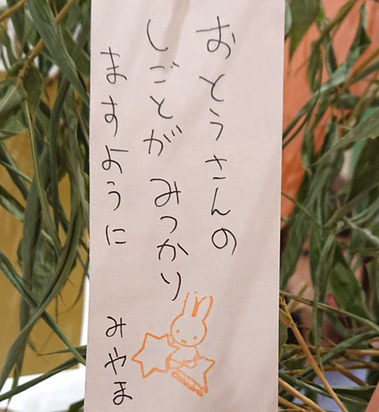 おとうさんの
しごとが みつかり
ますように
みやま